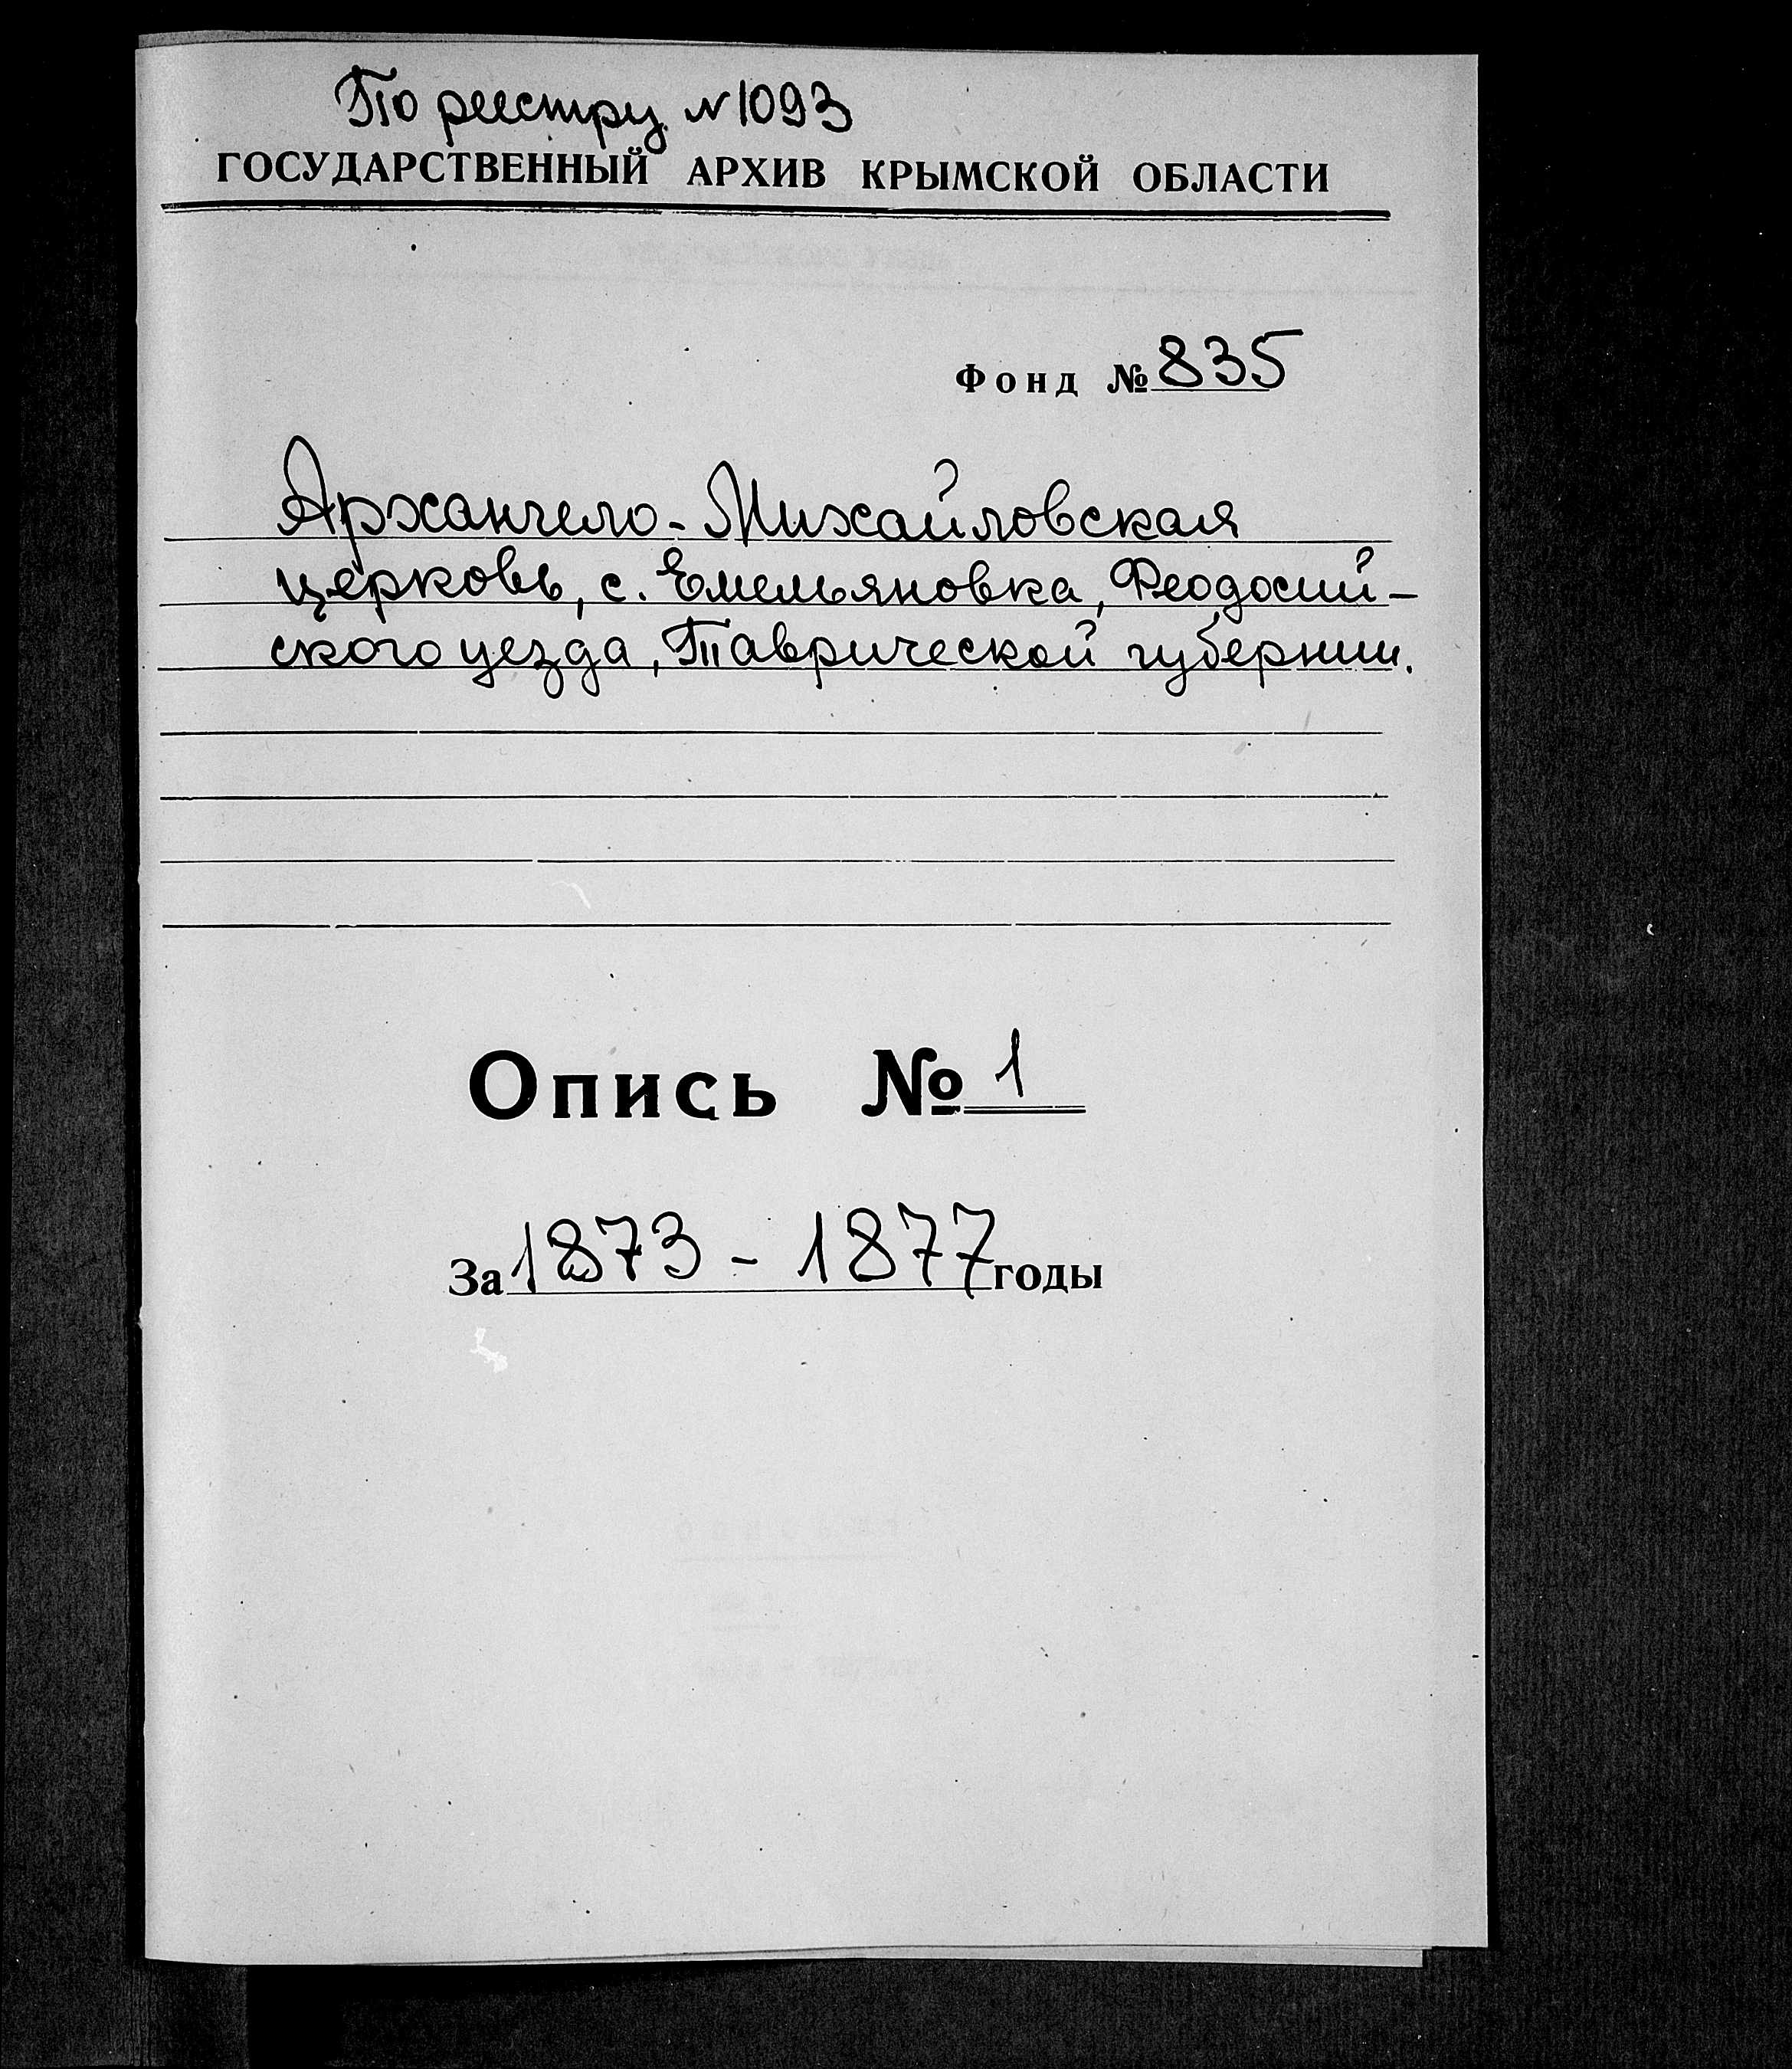 По реестру №1093
ГОСУДАРСТВЕННЫЙ АРХИВ КРЫМСКОЙ ОБЛАСТИ
Фонд № 835
Архангело-Михайловская
церковь, с. Емельяновка, Феодосий-
ского уезда, Таврической губернии.
Опись № 1
За 1873 - 1877 годы